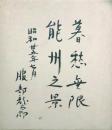 暮愁無限
能州之景
昭和廿五年七月
服部